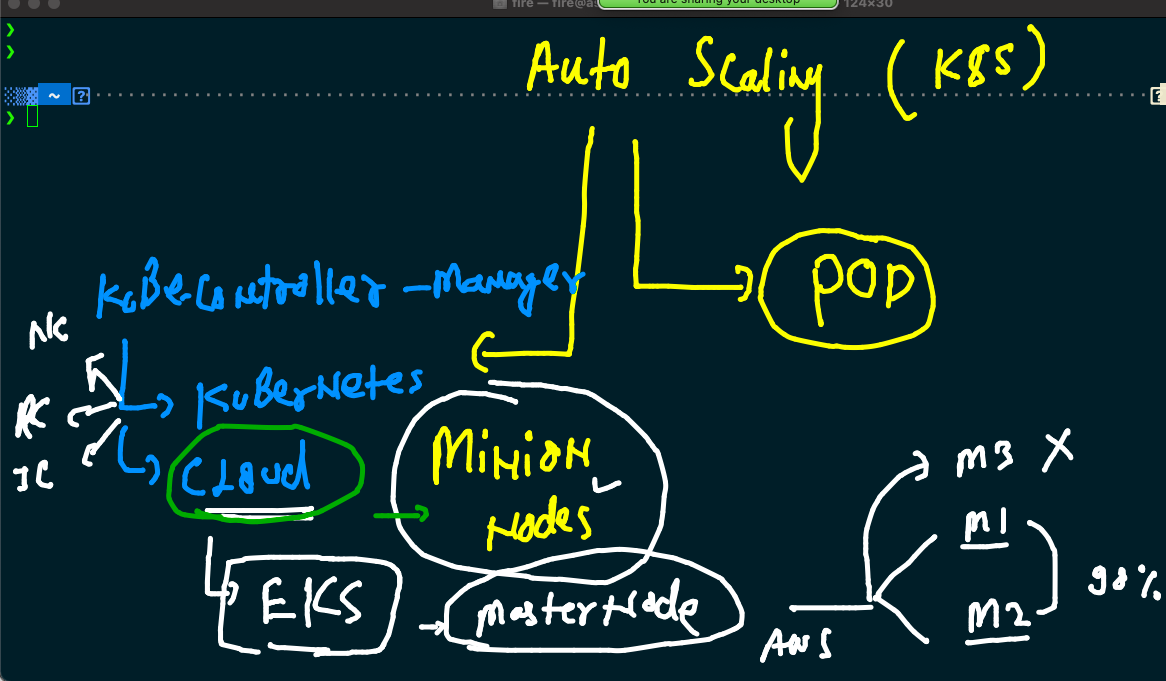 fire — fire@as
You are sharing your desktop
124×30
Auto Scaling (K8S)
~
POD
KuBeController-Manager
NC
KuBerNetes
RC
IC
Cloud
MiNioN
Nodes
EKS
MasterNode
AWS
M3 X
M1
M2
98%